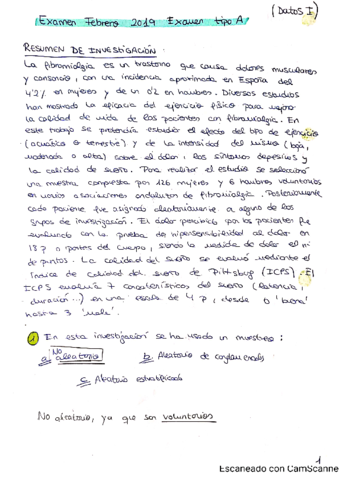 (Datos I)
Examen Febrero 2019 Examen tipo A
RESUMEN DE INVESTIGACIÓN:
La fibromialgia es un trastorno que causa dolores musculares
y cansancio, con una incidencia aproximada en España del
4'2% en mujeres y de un 0'2 en hombres. Diversos estudios
han mostrado la eficacia del ejercicio físico para mejorar
la calidad de vida de los pacientes con fibromialgia. En
este trabajo se pretendía estudiar el efecto del tipo de ejercicio
(acuático o terrestre) y de la intensidad del mismo (baja,
moderada o alta) sobre el dolor, los síntomas depresivos y
la calidad de sueño. Para realizar el estudio se seleccionó
una muestra compuesta por 126 mujeres y 6 hombres voluntarios
en varias asociaciones andaluzas de fibromialgia. Posteriormente
cada paciente fue asignado aleatoriamente a alguno de los
grupos de investigación. El dolor percibido por los pacientes fue
evaluado con la prueba de hipersensibilidad al dolor en
18 p o partes del cuerpo, siendo la medida de dolor el nº
de puntos. La calidad del sueño se evaluó mediante el
Índice de Calidad del sueño de Pittsburg (ICPS). El
ICPS evalúa 7 características del sueño (latencia,
duración...) en una escala de 4 p, desde 0 'buena'
hasta 3 'mala'.
1) En esta investigación se ha usado un muestreo:
a. No aleatorio b. Aleatorio de conglomerados
c. Aleatorio estratificado
No aleatorio, ya que son voluntarios
1
Escaneado con CamScanne